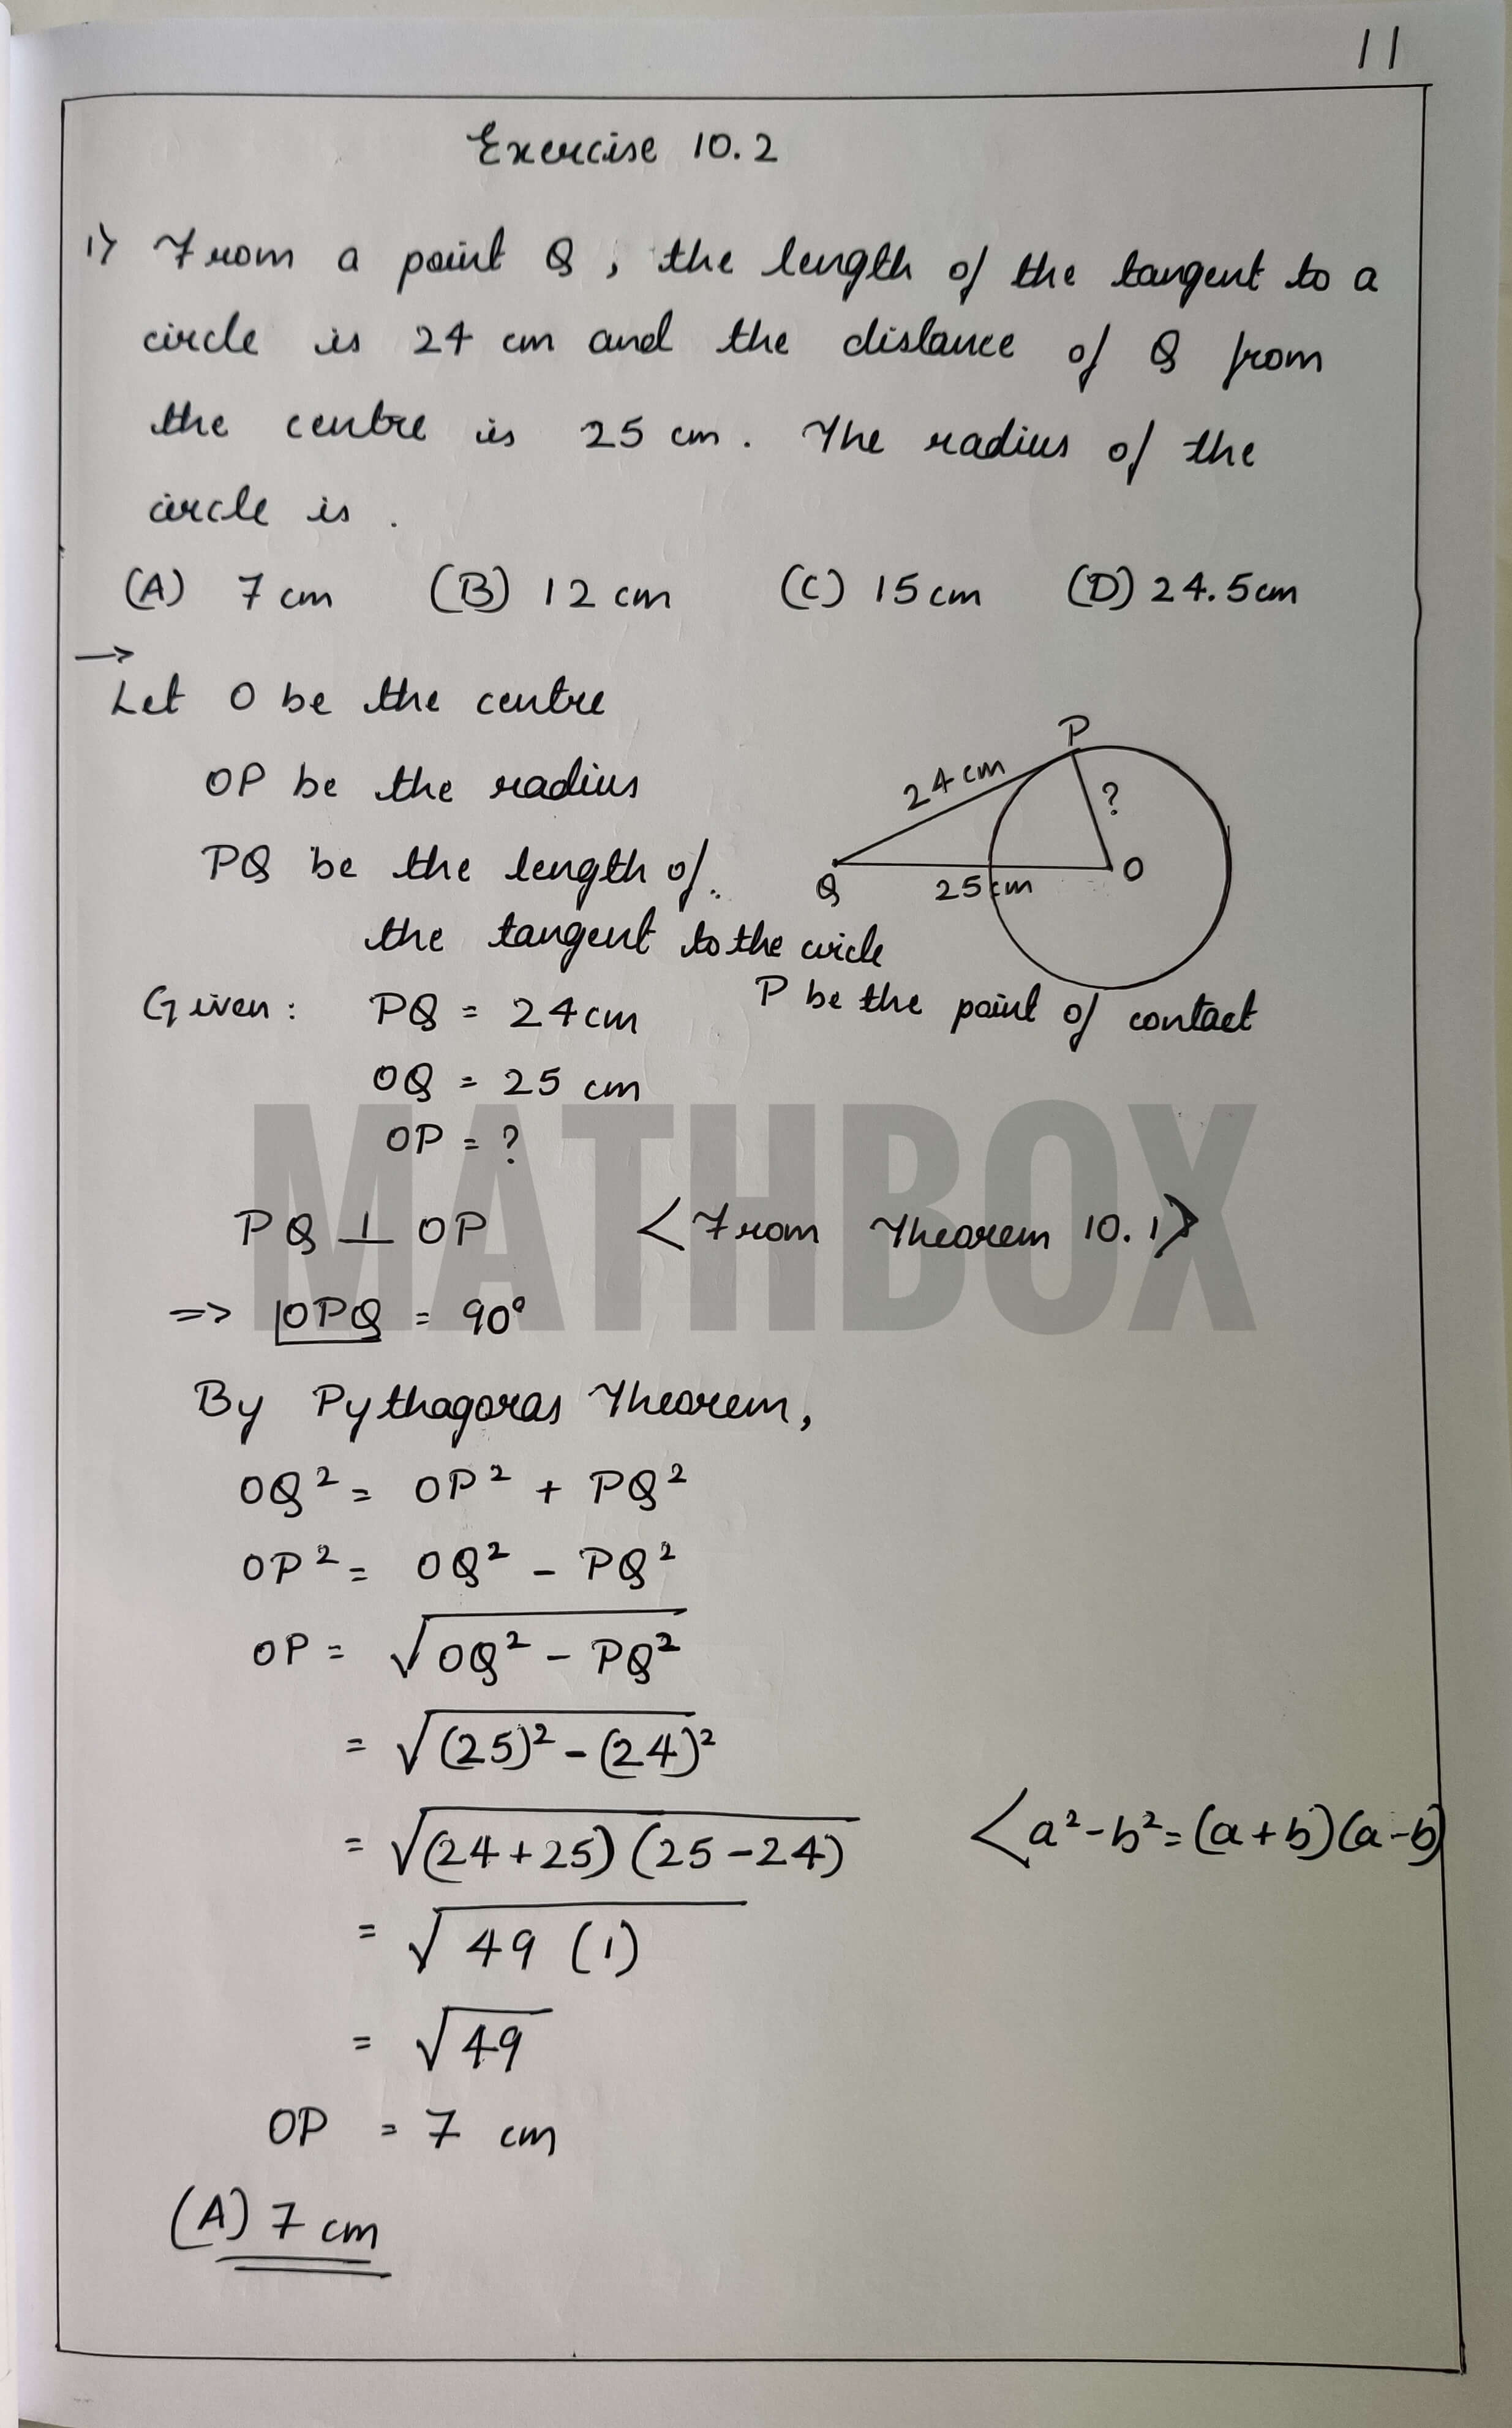 11
Exercise 10.2
1) From a point Q, the length of the tangent to a
circle is 24 cm and the distance of Q from
the centre is 25 cm. The radius of the
circle is .
(A) 7 cm (B) 12 cm (C) 15 cm (D) 24.5 cm
→
Let O be the centre
OP be the radius
PQ be the length of
the tangent to the circle
P
24 cm
?
Q
25 cm
O
P be the point of contact
Given: PQ = 24 cm
OQ = 25 cm
OP = ?
MATHBOX
PQ ⊥ OP <From Theorem 10.1>
=> ∠OPQ = 90°
By Pythagoras Theorem,
OQ² = OP² + PQ²
OP² = OQ² - PQ²
OP = √(OQ² - PQ²)
= √((25)² - (24)²)
= √((24+25)(25-24)) <a²-b²=(a+b)(a-b)
= √(49 (1))
= √49
OP = 7 cm
(A) 7 cm